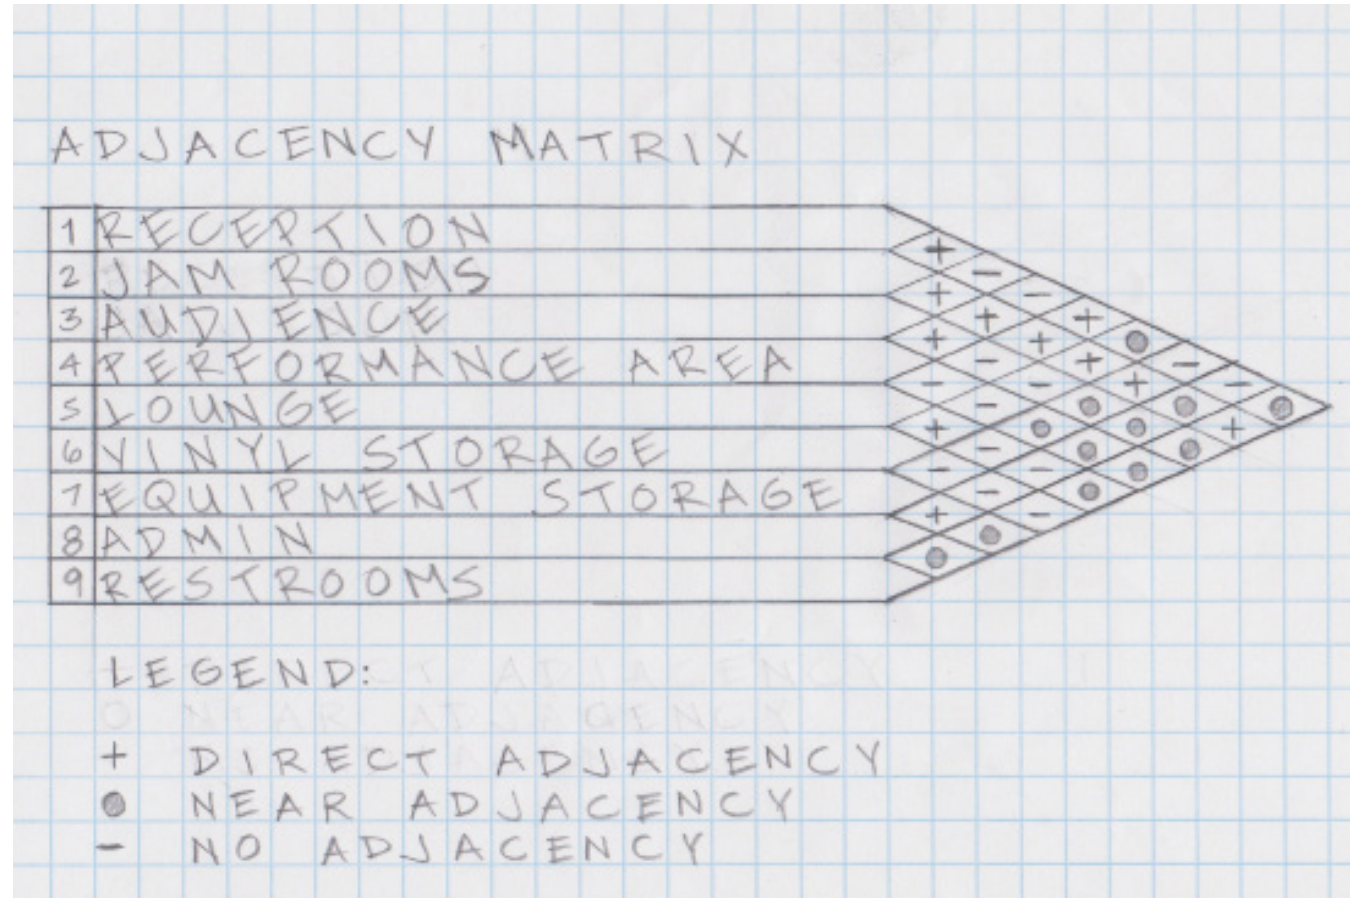 ADJACENCY MATRIX
1 RECEPTION
2 JAM ROOMS
3 AUDIENCE
4 PERFORMANCE AREA
5 LOUNGE
6 VINYL STORAGE
7 EQUIPMENT STORAGE
8 ADMIN
9 RESTROOMS
LEGEND:
+ DIRECT ADJACENCY
● NEAR ADJACENCY
- NO ADJACENCY